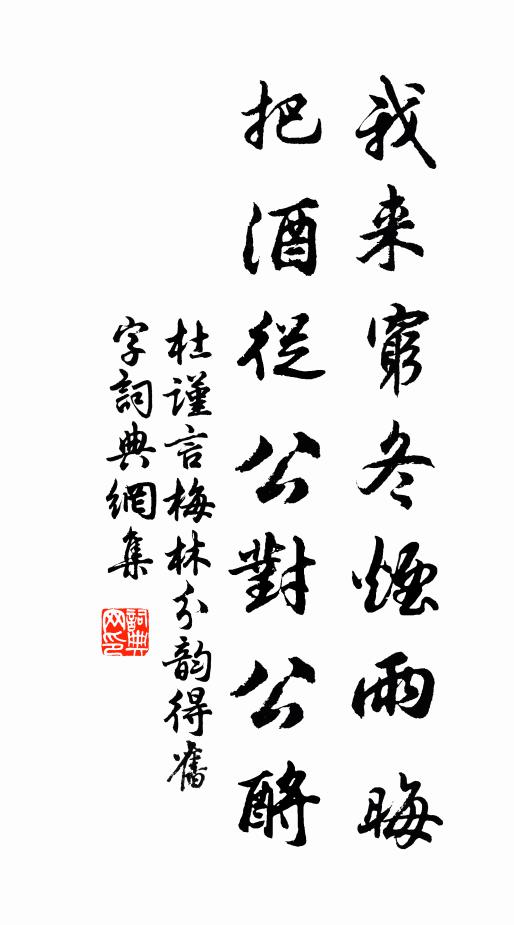 我来窮冬煙雨晦
把酒從公對公酹
杜謹言梅林分韵得舊
字詞典網集
詞典網印